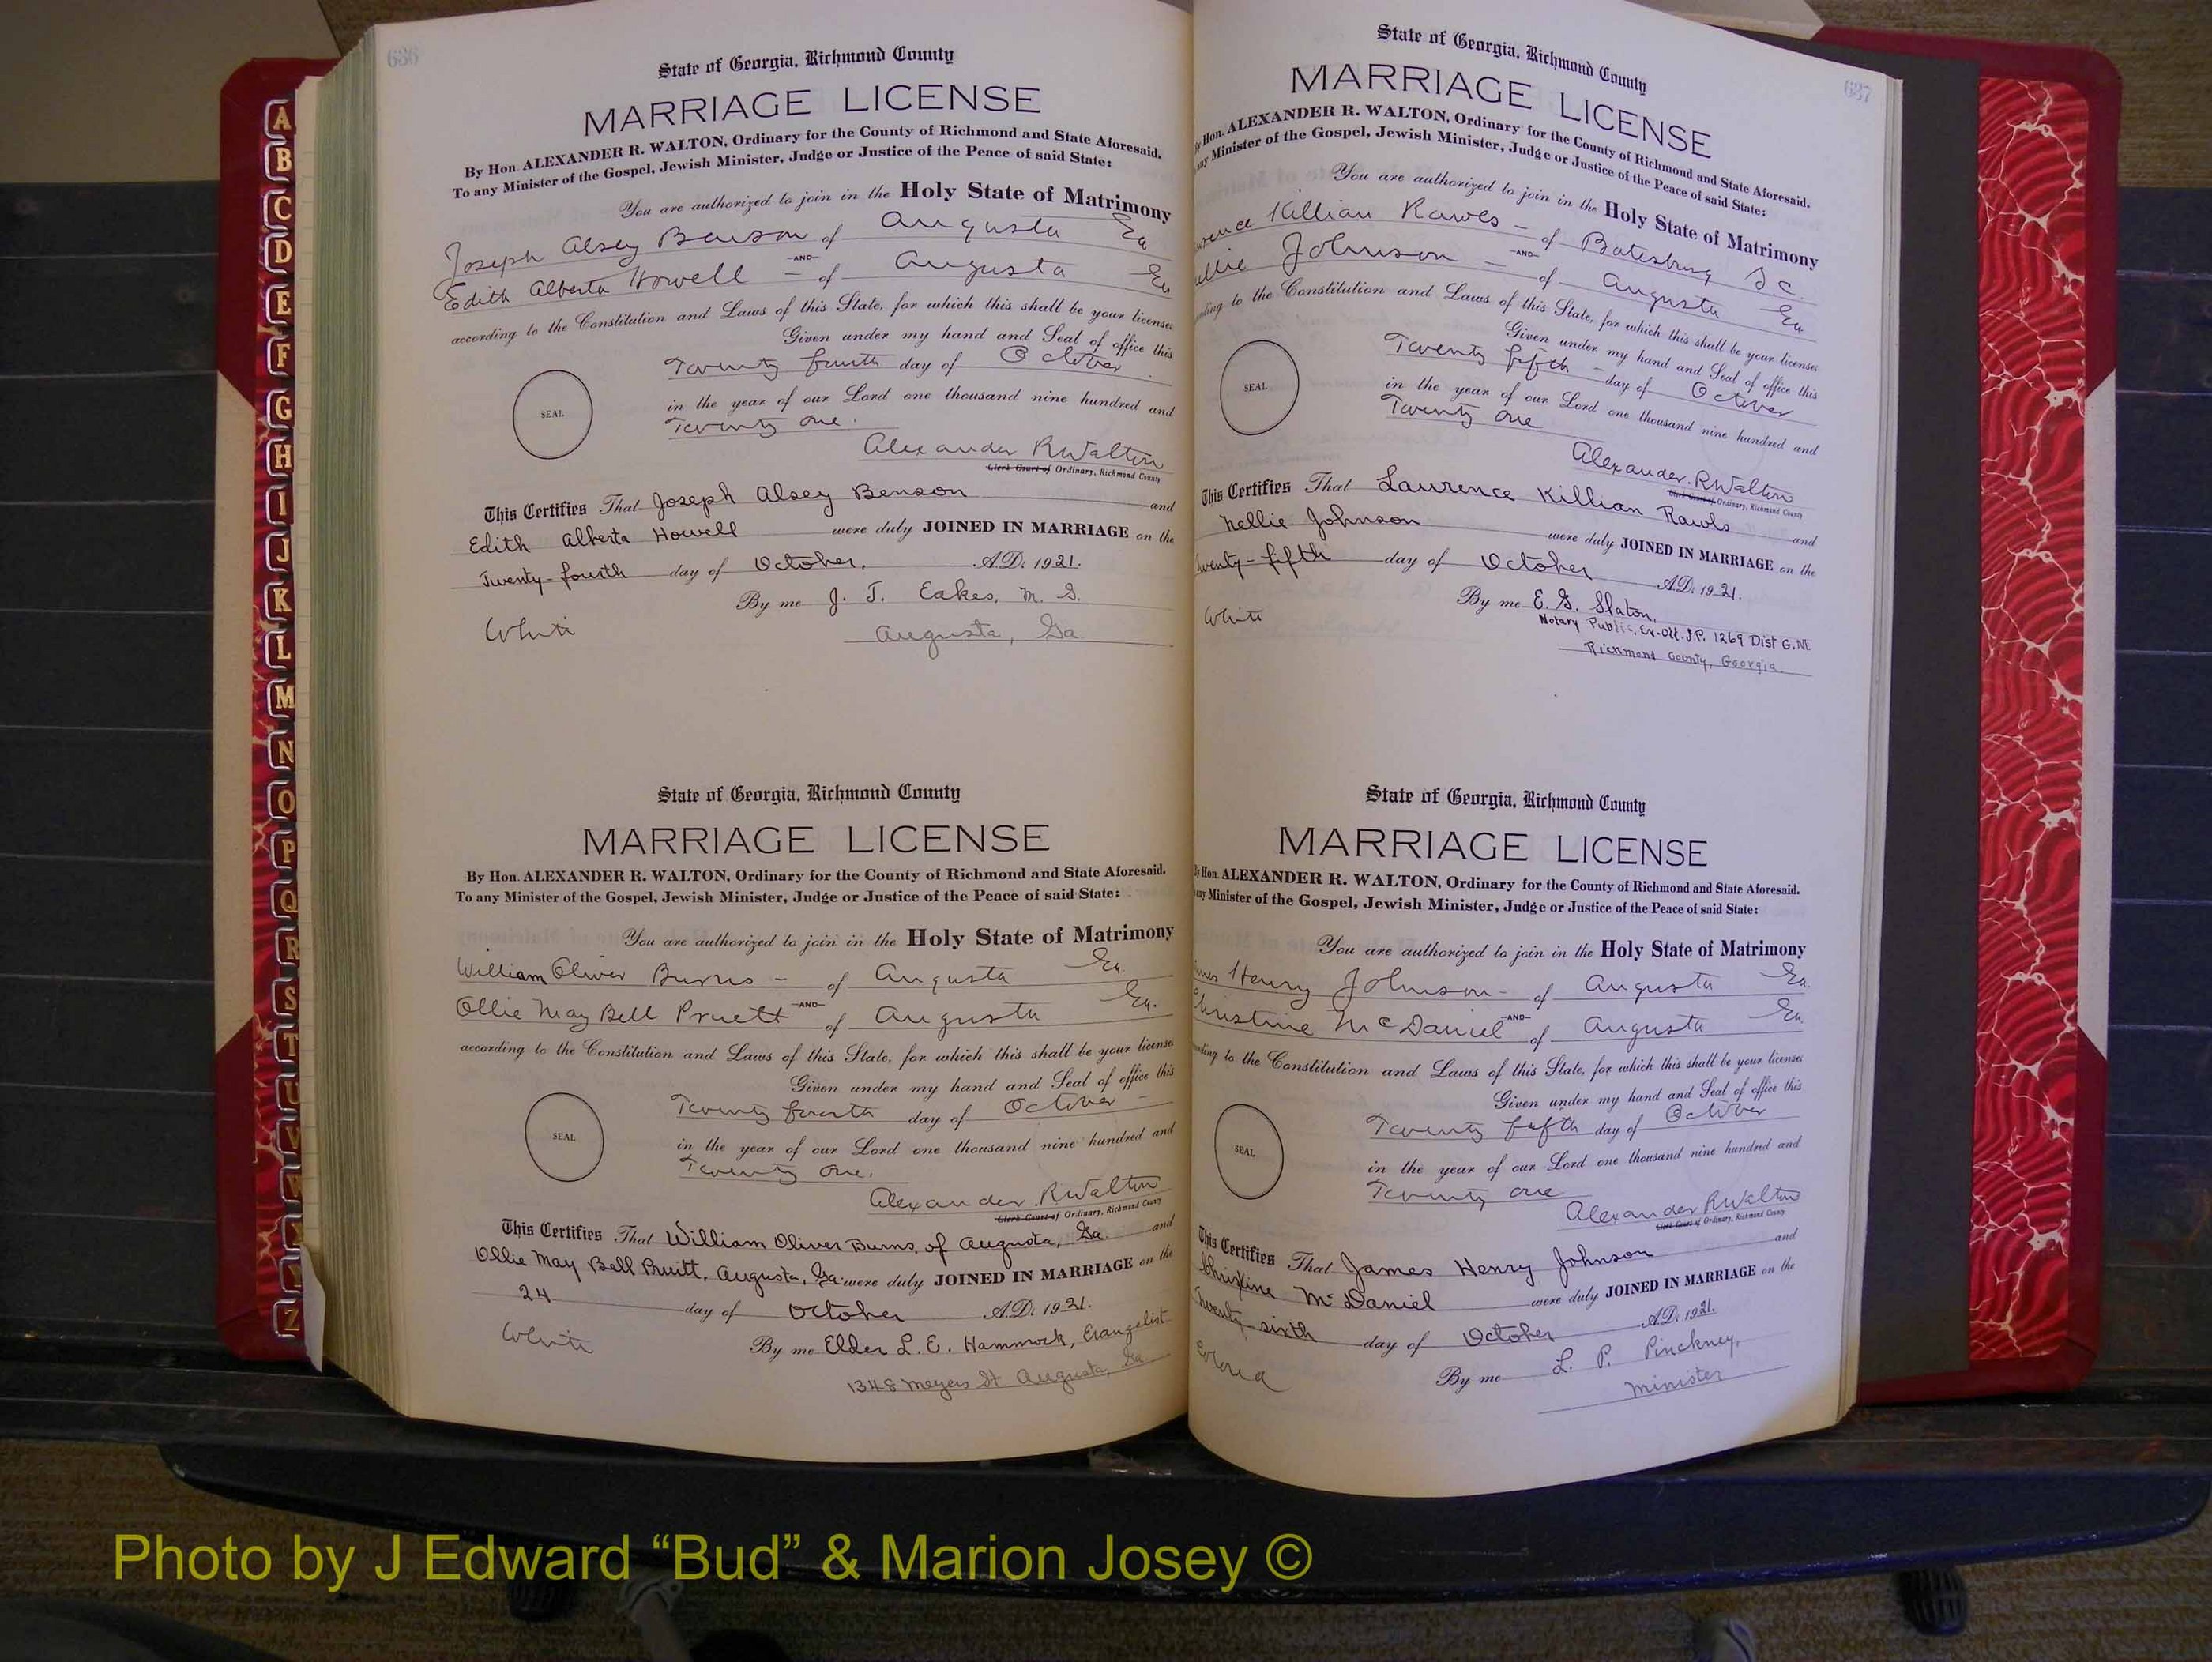 636
State of Georgia, Richmond County
MARRIAGE LICENSE
By Hon. ALEXANDER R. WALTON, Ordinary for the County of Richmond and State Aforesaid.
To any Minister of the Gospel, Jewish Minister, Judge or Justice of the Peace of said State:
You are authorized to join in the Holy State of Matrimony
Joseph Alsey Benson of Augusta Ga
—AND—
Edith Alberta Howell – of Augusta Ga
according to the Constitution and Laws of this State, for which this shall be your license
Given under my hand and Seal of office this
Twenty fourth day of October
in the year of our Lord one thousand nine hundred and
SEAL
Twenty one.
Alexander R Walton
Clerk Court of Ordinary, Richmond County
This Certifies That Joseph Alsey Benson and
Edith Alberta Howell were duly JOINED IN MARRIAGE on the
Twenty-fourth day of October, A.D. 1921.
By me J. T. Eakes, M. G.
White
Augusta, Ga
State of Georgia, Richmond County
MARRIAGE LICENSE
By Hon. ALEXANDER R. WALTON, Ordinary for the County of Richmond and State Aforesaid.
To any Minister of the Gospel, Jewish Minister, Judge or Justice of the Peace of said State:
You are authorized to join in the Holy State of Matrimony
William Oliver Burns – of Augusta Ga.
—AND—
Ollie May Bell Pruett of Augusta Ga.
according to the Constitution and Laws of this State, for which this shall be your license
Given under my hand and Seal of office this
Twenty fourth day of October
SEAL
in the year of our Lord one thousand nine hundred and
Twenty One.
Alexander R Walton
Clerk Court of Ordinary, Richmond County
This Certifies That William Oliver Burns, of Augusta, Ga. and
Ollie May Bell Pruitt, Augusta, Ga. were duly JOINED IN MARRIAGE on the
24 day of October A.D. 1921.
White
By me Elder L. E. Hammock, Evangelist
1348 Meyers St Augusta, Ga
637
State of Georgia, Richmond County
MARRIAGE LICENSE
By Hon. ALEXANDER R. WALTON, Ordinary for the County of Richmond and State Aforesaid.
any Minister of the Gospel, Jewish Minister, Judge or Justice of the Peace of said State:
You are authorized to join in the Holy State of Matrimony
Killian Rawls – of Batesburg S.C.
—AND—
Johnson – of Augusta Ga
to the Constitution and Laws of this State, for which this shall be your license
Given under my hand and Seal of office this
Twenty fifth – day of October
SEAL
in the year of our Lord one thousand nine hundred and
Twenty One
Alexander R Walton
Clerk Court of Ordinary, Richmond County
This Certifies That Laurence Killian Rawls and
Nellie Johnson were duly JOINED IN MARRIAGE on the
Twenty-fifth day of October A.D. 1921.
By me E. G. Slaton,
White
Notary Public, Ex-Off. J.P. 1269 Dist G.M.
Richmond County, Georgia.
State of Georgia, Richmond County
MARRIAGE LICENSE
By Hon. ALEXANDER R. WALTON, Ordinary for the County of Richmond and State Aforesaid.
any Minister of the Gospel, Jewish Minister, Judge or Justice of the Peace of said State:
You are authorized to join in the Holy State of Matrimony
Henry Johnson – of Augusta Ga.
—AND—
Christine McDaniel of Augusta Ga.
to the Constitution and Laws of this State, for which this shall be your license
Given under my hand and Seal of office this
Twenty fifth day of October
SEAL
in the year of our Lord one thousand nine hundred and
Twenty one
Alexander R Walton
Clerk Court of Ordinary, Richmond County
This Certifies That James Henry Johnson and
Christine McDaniel were duly JOINED IN MARRIAGE on the
Twenty-sixth day of October A.D. 1921.
Colored
By me L. P. Pinckney,
Minister
A
B
C
D
E
F
G
H
I
J
K
L
M
N
O
P
Q
R
S
T
U
V
W
Z
Photo by J Edward “Bud” & Marion Josey ©